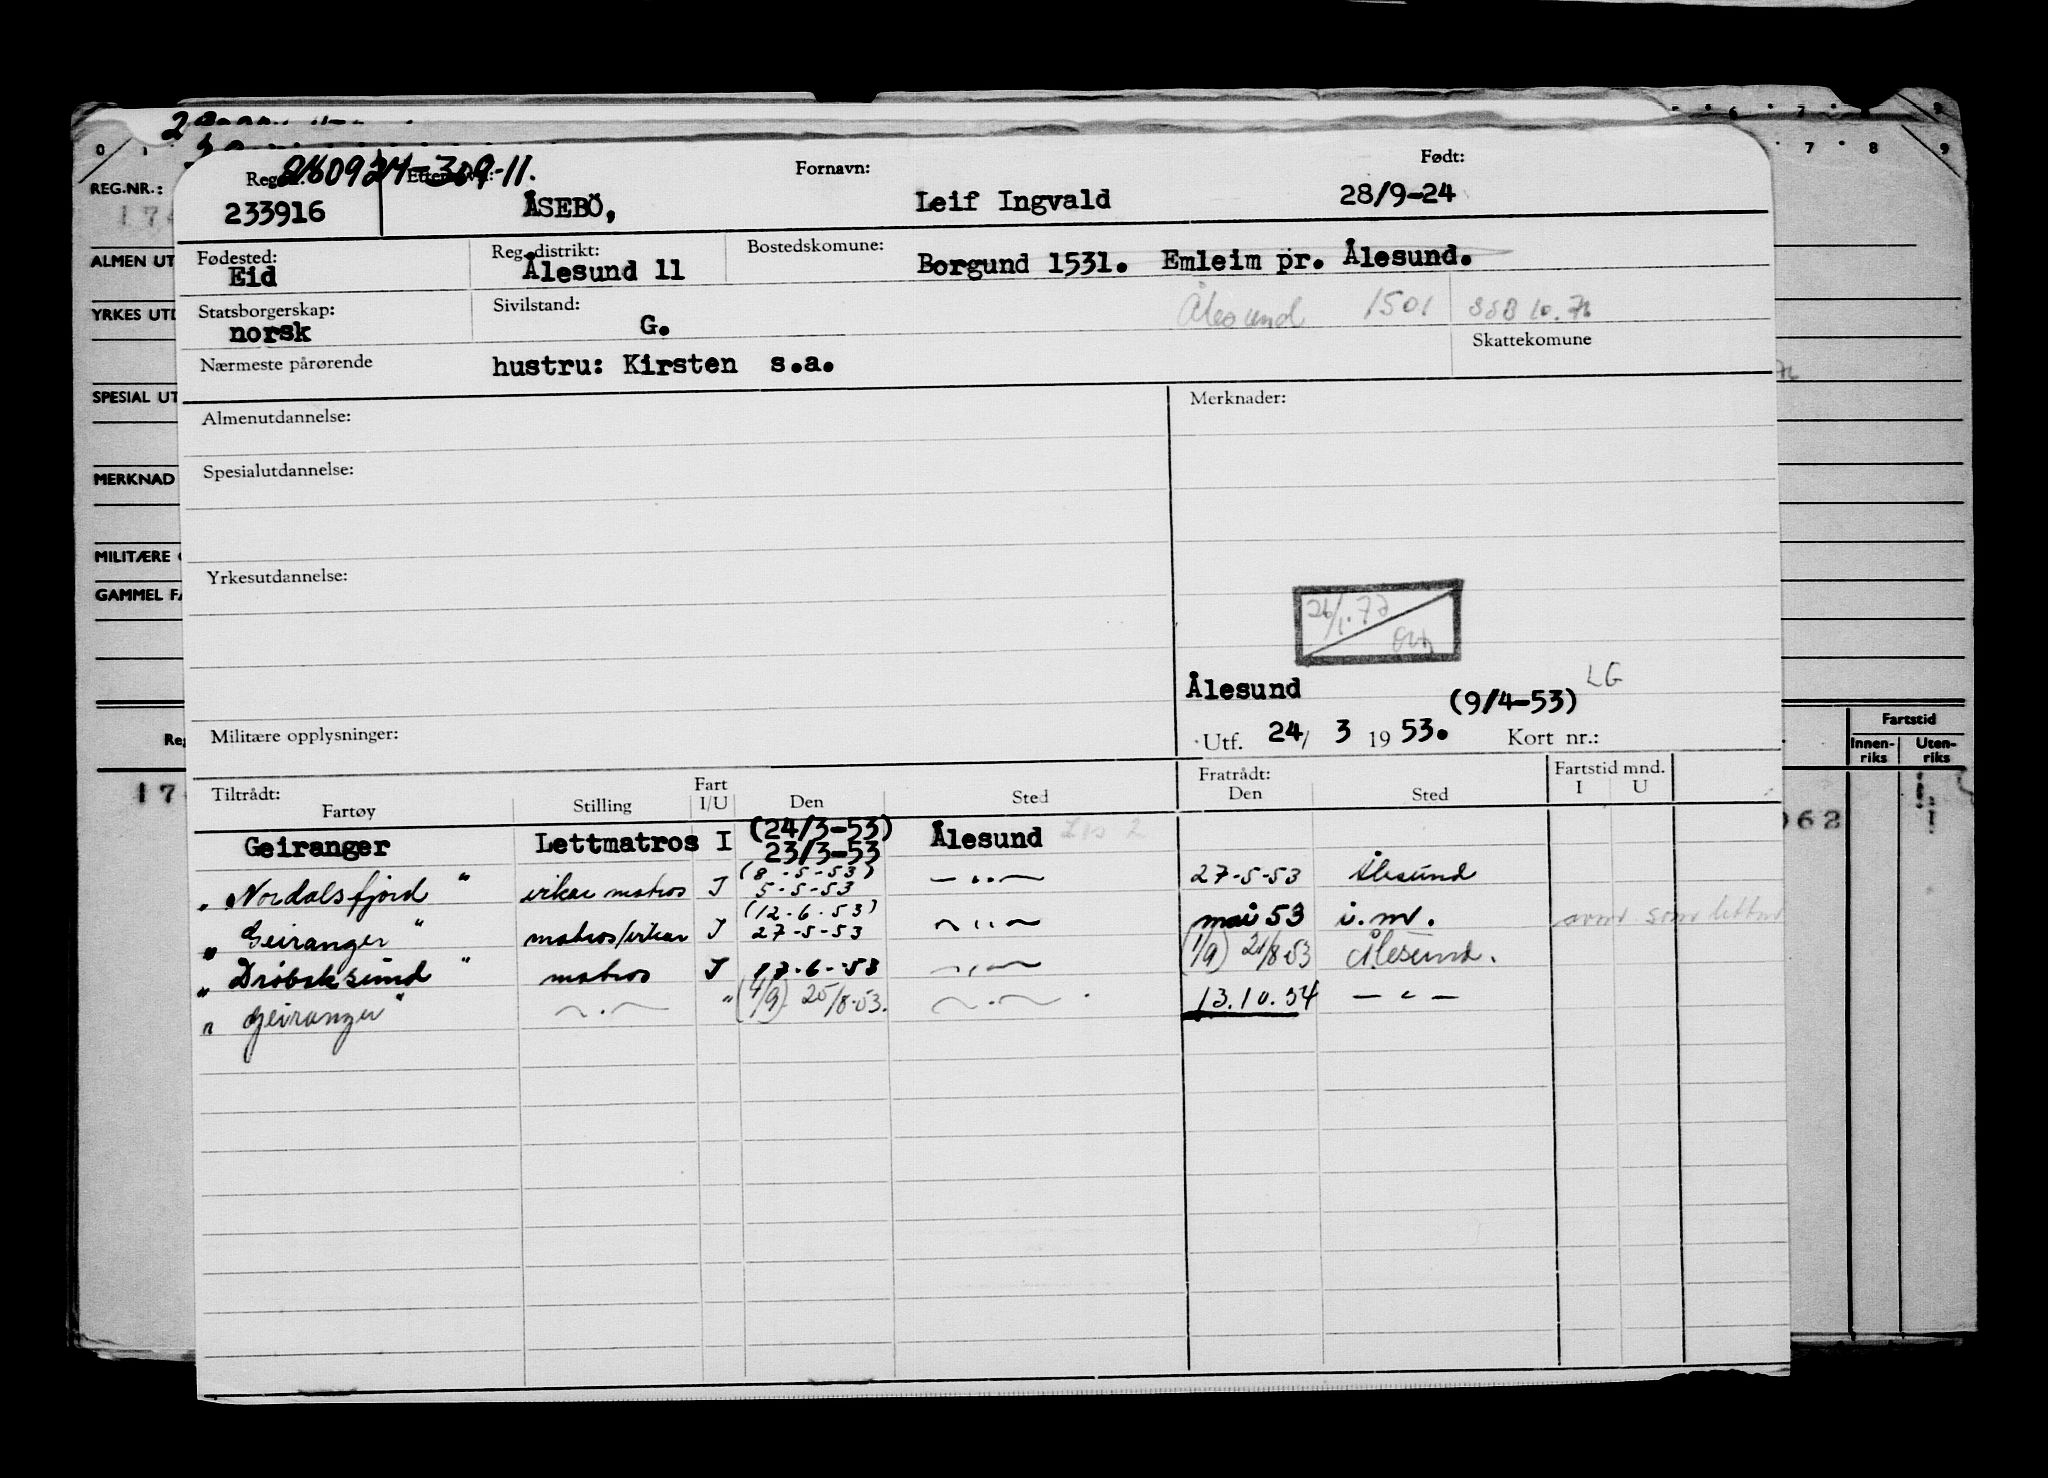 0 1 6 7 8 9
REG.NR.:
ALMEN UT
YRKES UTD
SPESIAL UT
MERKNAD
MILITÆRE
GAMMEL FA
280924-309-11.
Fornavn:
Født:
233916 ÅSEBÖ, Leif Ingvald 28/9-24
Fødested: Reg. distrikt: Bostedskomune:
Eid Ålesund 11 Borgund 1531. Emleim pr. Ålesund.
Statsborgerskap: Sivilstand: Ålesund 1501 SSB 10.72
norsk G.
Skattekomune
Nærmeste pårørende hustru: Kirsten s.a.
Almenutdannelse: Merknader:
Spesialutdannelse:
Yrkesutdannelse:
26/1.77
Ålesund (9/4-53) LG
Militære opplysninger: Utf. 24/ 3 1953. Kort nr.:
Tiltrådt: Fart Fratrådt: Fartstid mnd.
Fartøy Stilling I/U Den Sted Den Sted I U
Geiranger Lettmatros I (24/3-53) 23/3-53 Ålesund
" Nordalsfjord " virkar matros I (8-5-53) 5-5-53 — " — 27-5-53 Ålesund
" Geiranger " matros/virkar I (12.6.53) 27-5-53 — " — mai 53 i.m.
" Drøbaksund " matros I 17-6-53 — " — (1/9) 21/8.53 Ålesund.
" Geiranger " — " — " (4/9) 25/8.53. — " — 13.10.54 — " —
Fartstid
Innen-
riks
Uten-
riks
17
062